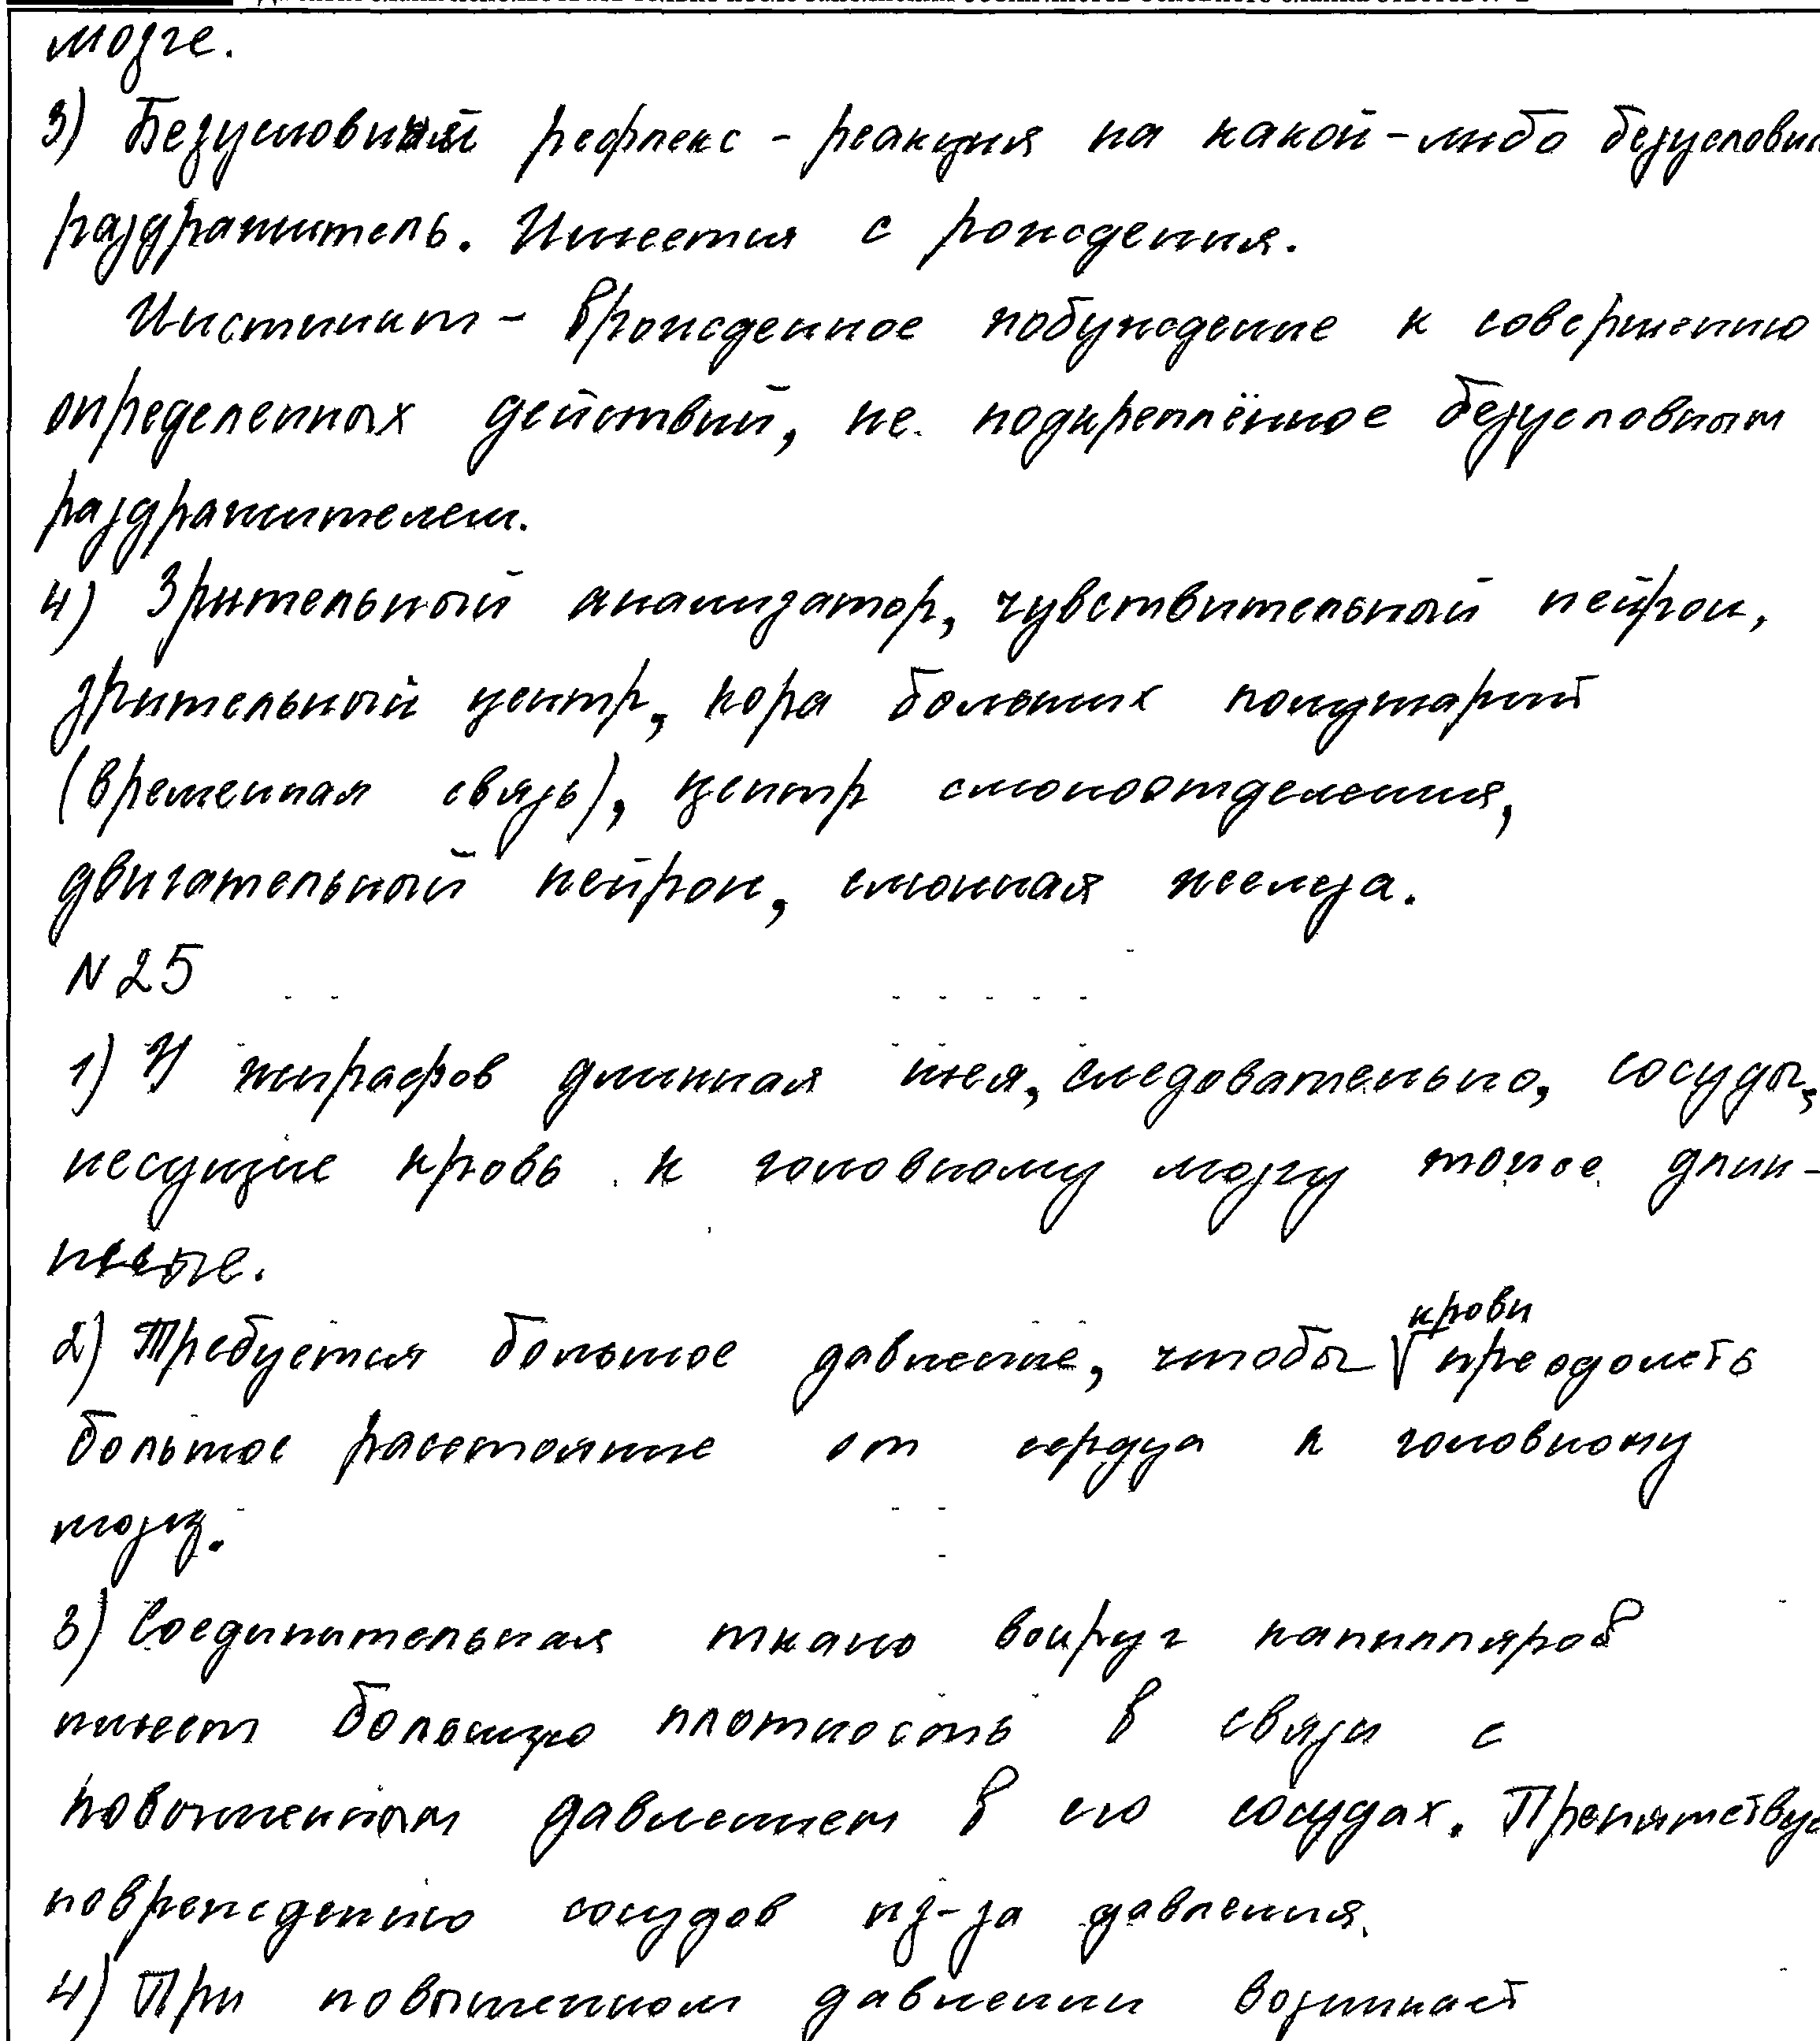 мозге.
3) Безусловный рефлекс - реакция на какой-либо безусловн
раздражитель. Имеется с рождения.
Инстинкт - врождённое побуждение к совершению
определенных действий, не подкреплённое безусловным
раздражителем.
4) Зрительный анализатор, чувствительный нейрон,
зрительный центр, кора больших полушарий
(временная связь), центр слюноотделения,
двигательный нейрон, слюнная железа.
N 25
1) У жирафов длинная шея, следовательно, сосуды,
несущие кровь к головному мозгу тоже длин-
ные.
2) Требуется большое давление, чтобы крови преодолеть
большое расстояние от сердца к головному
мозгу.
3) Соединительная ткань вокруг капилляров
имеет большую плотность в связи с
повышенным давлением в его сосудах. Препятствуе
повреждению сосудов из-за давления.
4) При повышенном давлении возникает